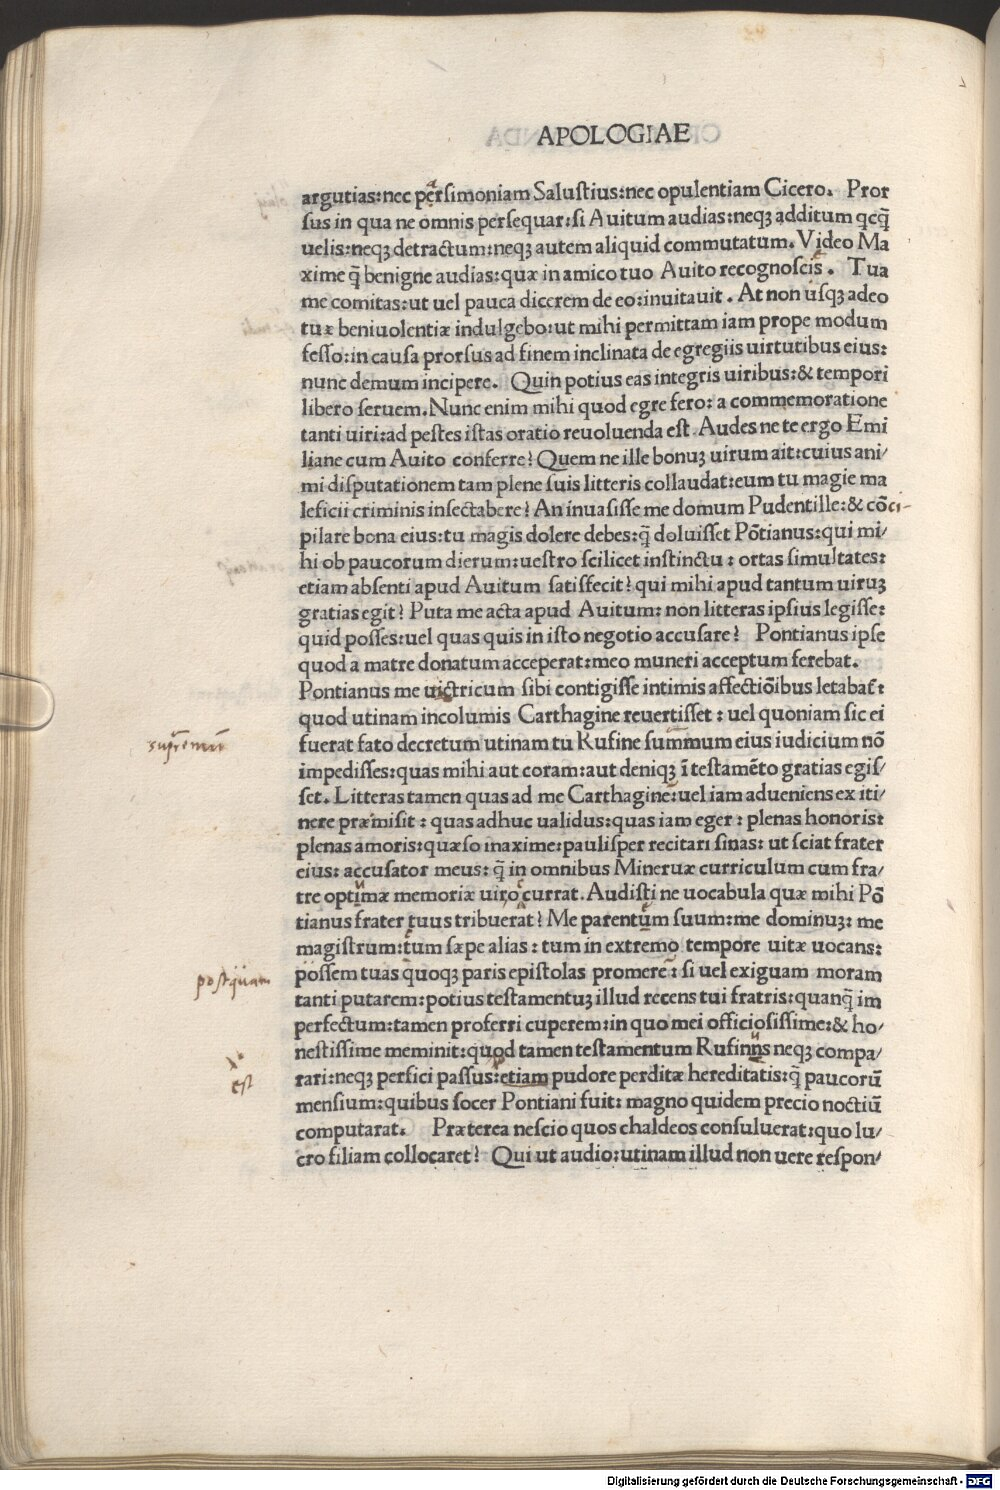 APOLOGIAE
argutias: nec persimoniam Salustius: nec opulentiam Cicero. Pror
sus in qua ne omnis persequar: si Auitum audias: neqꝫ additum qcq̃
uelis: neqꝫ detractum: neqꝫ autem aliquid commutatum. Video Ma
xime q̃ benigne audias: quæ in amico tuo Auito recognoscis. Tua
me comitas: ut uel pauca dicerem de eo: inuitauit. At non usqꝫ adeo
tuæ beniuolentiæ indulgebo: ut mihi permittam iam prope modum
fesso: in causa prorsus ad finem inclinata de egregiis uirtutibus eius:
nunc demum incipere. Quin potius eas integris uiribus: & tempori
libero seruem. Nunc enim mihi quod egre fero: a commemoratione
tanti uiri: ad pestes istas oratio reuoluenda est. Audes ne te ergo Emi
liane cum Auito conferre? Quem ne ille bonuꝫ uirum ait: cuius ani/
mi disputationem tam plene suis litteris collaudat: eum tu magie ma
leficii criminis insectabere? An inuasisse me domum Pudentille: & cõci-
pilare bona eius: tu magis dolere debes: q̃ doluisset Põtianus: qui mi/
hi ob paucorum dierum: uestro scilicet instinctu: ortas simultates:
etiam absenti apud Auitum satisfecit? qui mihi apud tantum uiruꝫ
gratias egit? Puta me acta apud Auitum: non litteras ipsius legisse:
quid posses: uel quas quis in isto negotio accusare? Pontianus ipse
quod a matre donatum acceperat: meo muneri acceptum ferebat.
Pontianus me uictricum sibi contigisse intimis affectiõibus letabat̃:
quod utinam incolumis Carthagine reuertisset: uel quoniam sic ei
supremum
fuerat fato decretum utinam tu Rufine summum eius iudicium nõ
impedisses: quas mihi aut coram: aut deniqꝫ ĩ testamẽto gratias egis/
set. Litteras tamen quas ad me Carthagine: uel iam adueniens ex iti/
nere præmisit: quas adhuc ualidus: quas iam eger: plenas honoris:
plenas amoris: quæso maxime: paulisper recitari sinas: ut sciat frater
eius: accusator meus: q̃ in omnibus Mineruæ curriculum cum fra/
tre optimæ memoriæ uiro currat. Audisti ne uocabula quæ mihi Põ
tianus frater tuus tribuerat? Me parentum suum: me dominuꝫ: me
magistrum: tum sæpe alias: tum in extremo tempore uitæ uocans:
postquam
possem tuas quoqꝫ paris epistolas promere: si uel exiguam moram
tanti putarem: potius testamentuꝫ illud recens tui fratris: quanq̃ im
perfectum: tamen proferri cuperem: in quo mei officiosissime: & ho/
nestissime meminit: quod tamen testamentum Rufinns neqꝫ compa/
est
rari: neqꝫ perfici passus: etiam pudore perditæ hereditatis: q̃ paucorũ
mensium: quibus socer Pontiani fuit: magno quidem precio noctiũ
computarat. Præterea nescio quos chaldeos consuluerat: quo lu/
cro filiam collocaret? Qui ut audio: utinam illud non uere respon/
Digitalisierung gefördert durch die Deutsche Forschungsgemeinschaft - DFG